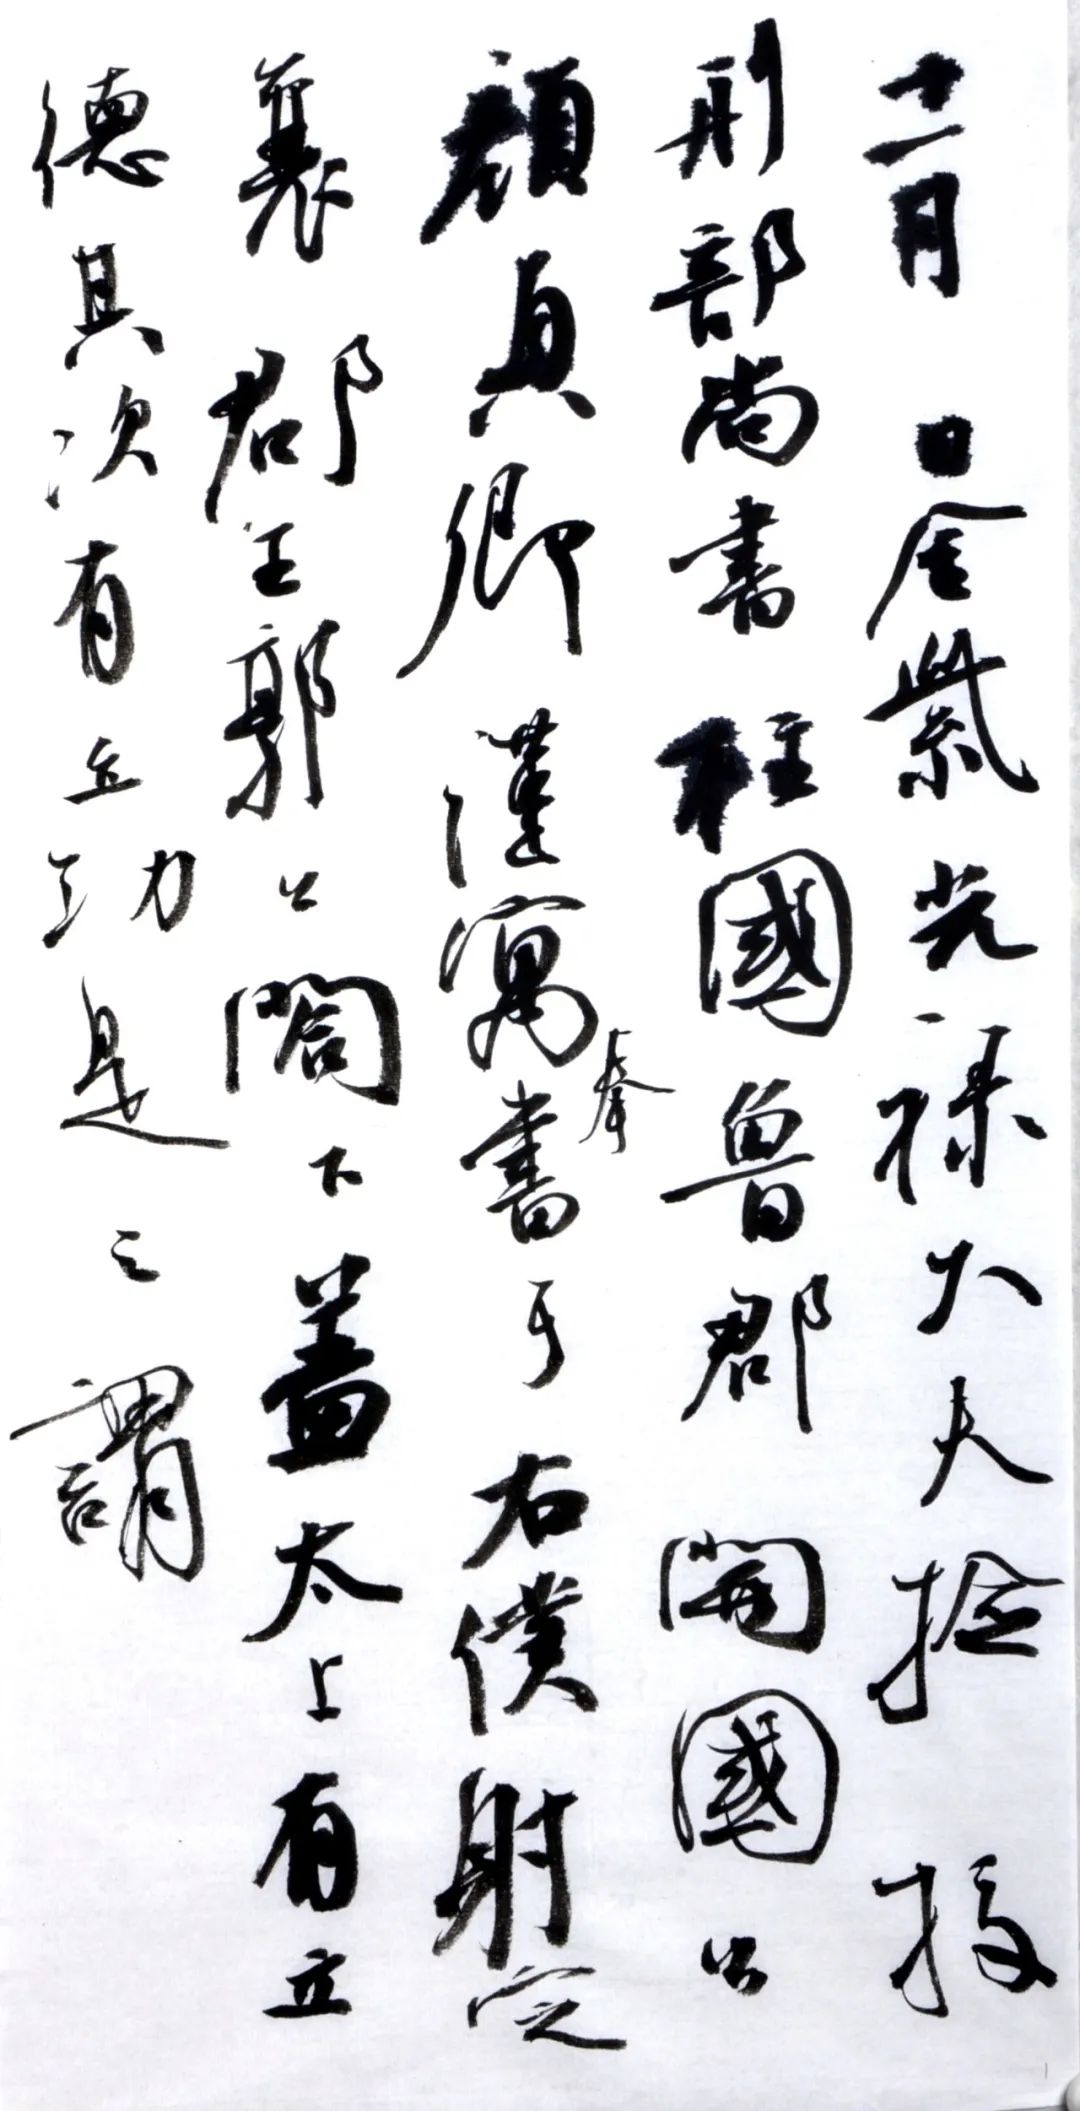 十一月日金紫光禄大夫撿挍
刑部尚書柱國魯郡開國公
顔真卿謹寓書于右僕射定
奉
襄郡王郭公閤下盖太上有立
德其次有立功是之謂